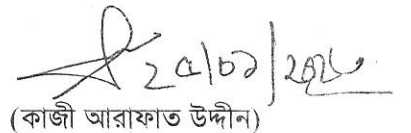 ২৫/০১/২০১৮
(কাজী আরাফাত উদ্দীন)